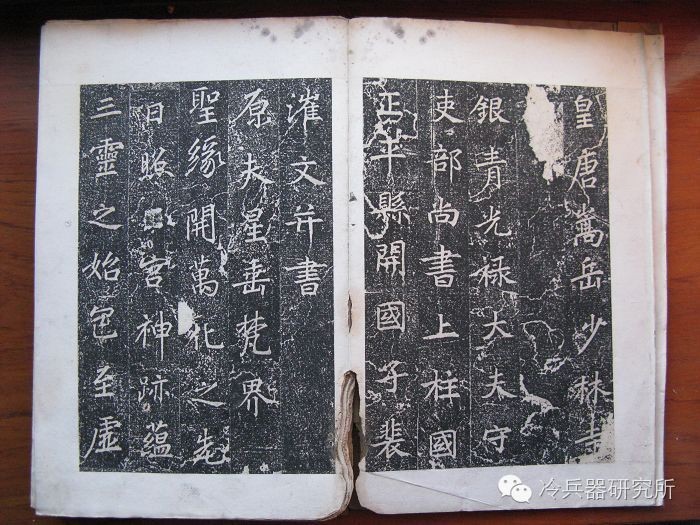 皇唐嵩岳少林寺
銀青光禄大夫守
吏部尚書上柱國
正平縣開國子裴
漼文并書
原夫星垂梵界
聖緣開萬化之先
日照宮神跡蘊
三靈之始包至虛
冷兵器研究所